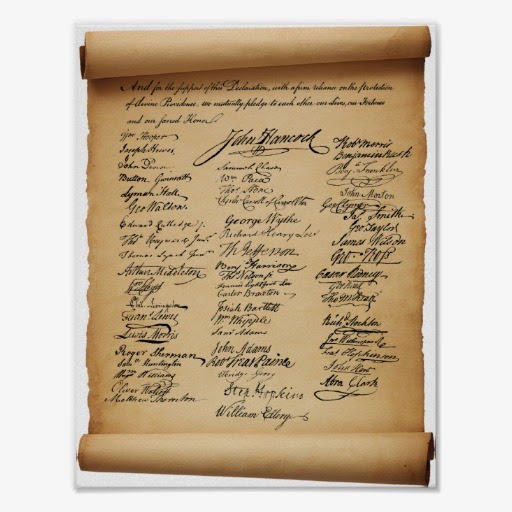 And for the support of this Declaration, with a firm reliance on the Protection
of divine Providence, we mutually pledge to each other our lives, our Fortunes
and our sacred Honor.
John Hancock
Wm Hooper
Joseph Hewes
John Penn
Button Gwinnett
Lyman Hall
Geo Walton
Edward Rutledge
Thos Heyward Junr
Thomas Lynch Junr
Arthur Middleton
Wm Floyd
Phil. Livingston
Frans Lewis
Lewis Morris
Roger Sherman
Saml Huntington
Wm Williams
Oliver Wolcott
Matthew Thornton
Samuel Chase
Wm Paca
Thos Stone
Charles Carroll of Carrollton
George Wythe
Richard Henry Lee
Th Jefferson
Benj Harrison
Thos Nelson jr
Francis Lightfoot Lee
Carter Braxton
Josiah Bartlett
Wm Whipple
Saml Adams
John Adams
Robt Treat Paine
Elbridge Gerry
Step Hopkins
William Ellery
Robt Morris
Benjamin Rush
Benj Franklin
John Morton
Geo Clymer
Jas Smith
Geo Taylor
James Wilson
Geo Ross
Caesar Rodney
Geo Read
Tho M:Kean
Richd Stockton
Jno Witherspoon
Fras Hopkinson
John Hart
Abra Clark